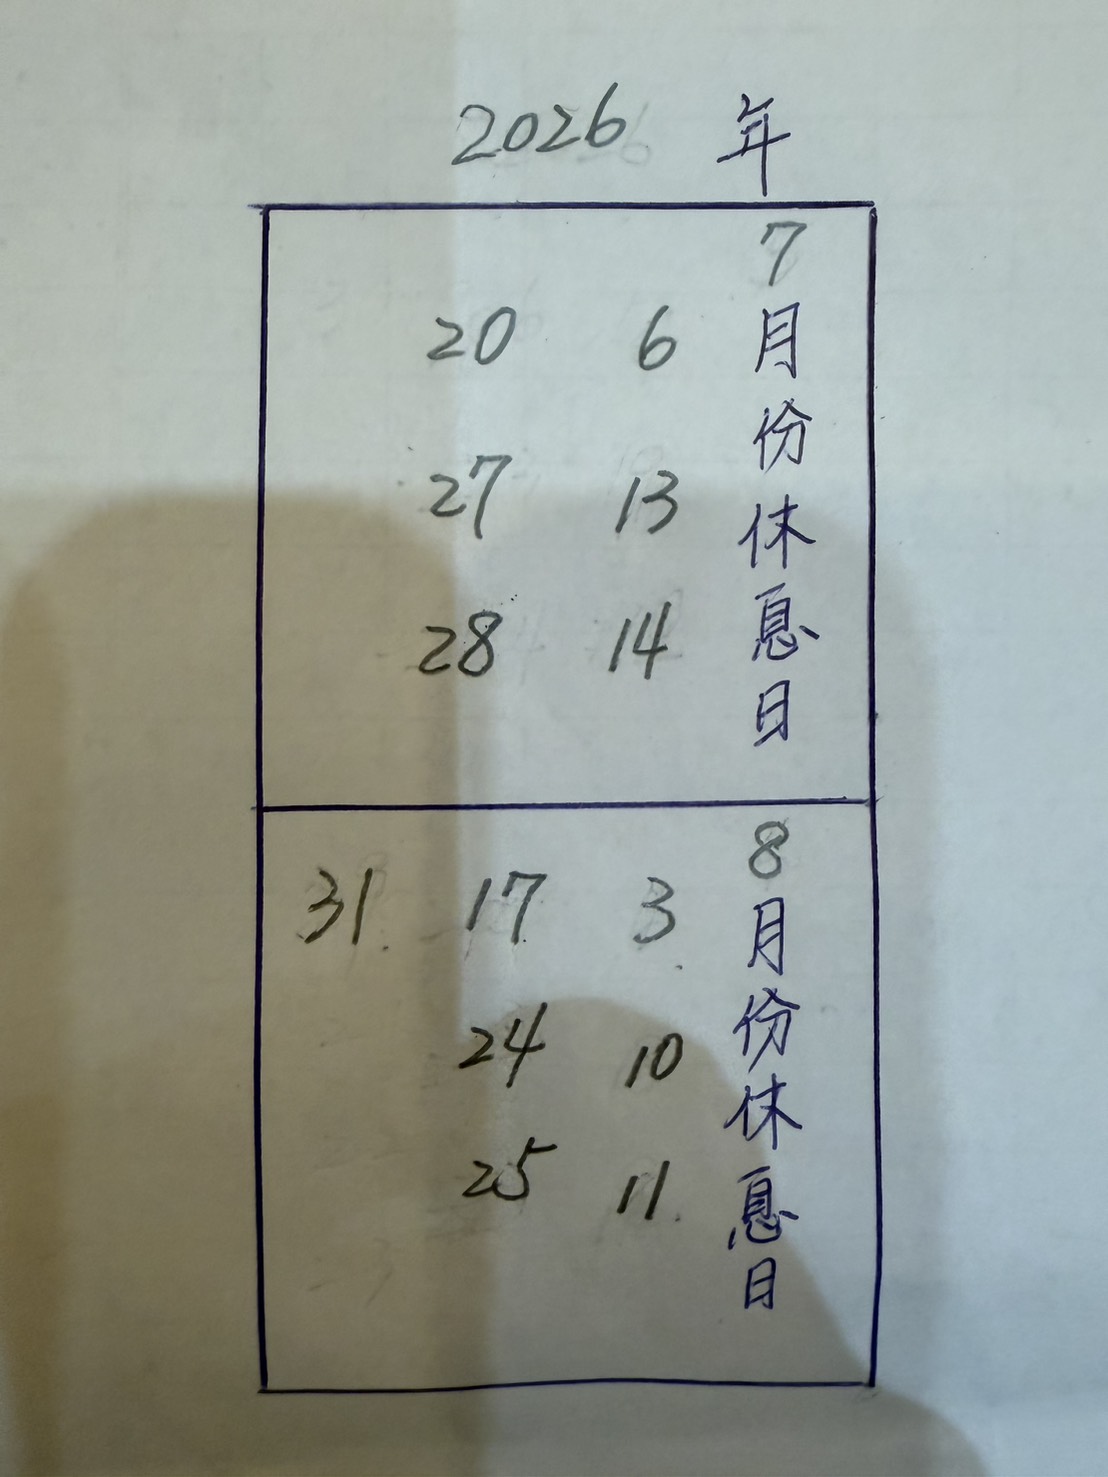 2026 年
7月份休息日
6
13
14
20
27
28
8月份休息日
3
10
11
17
24
25
31